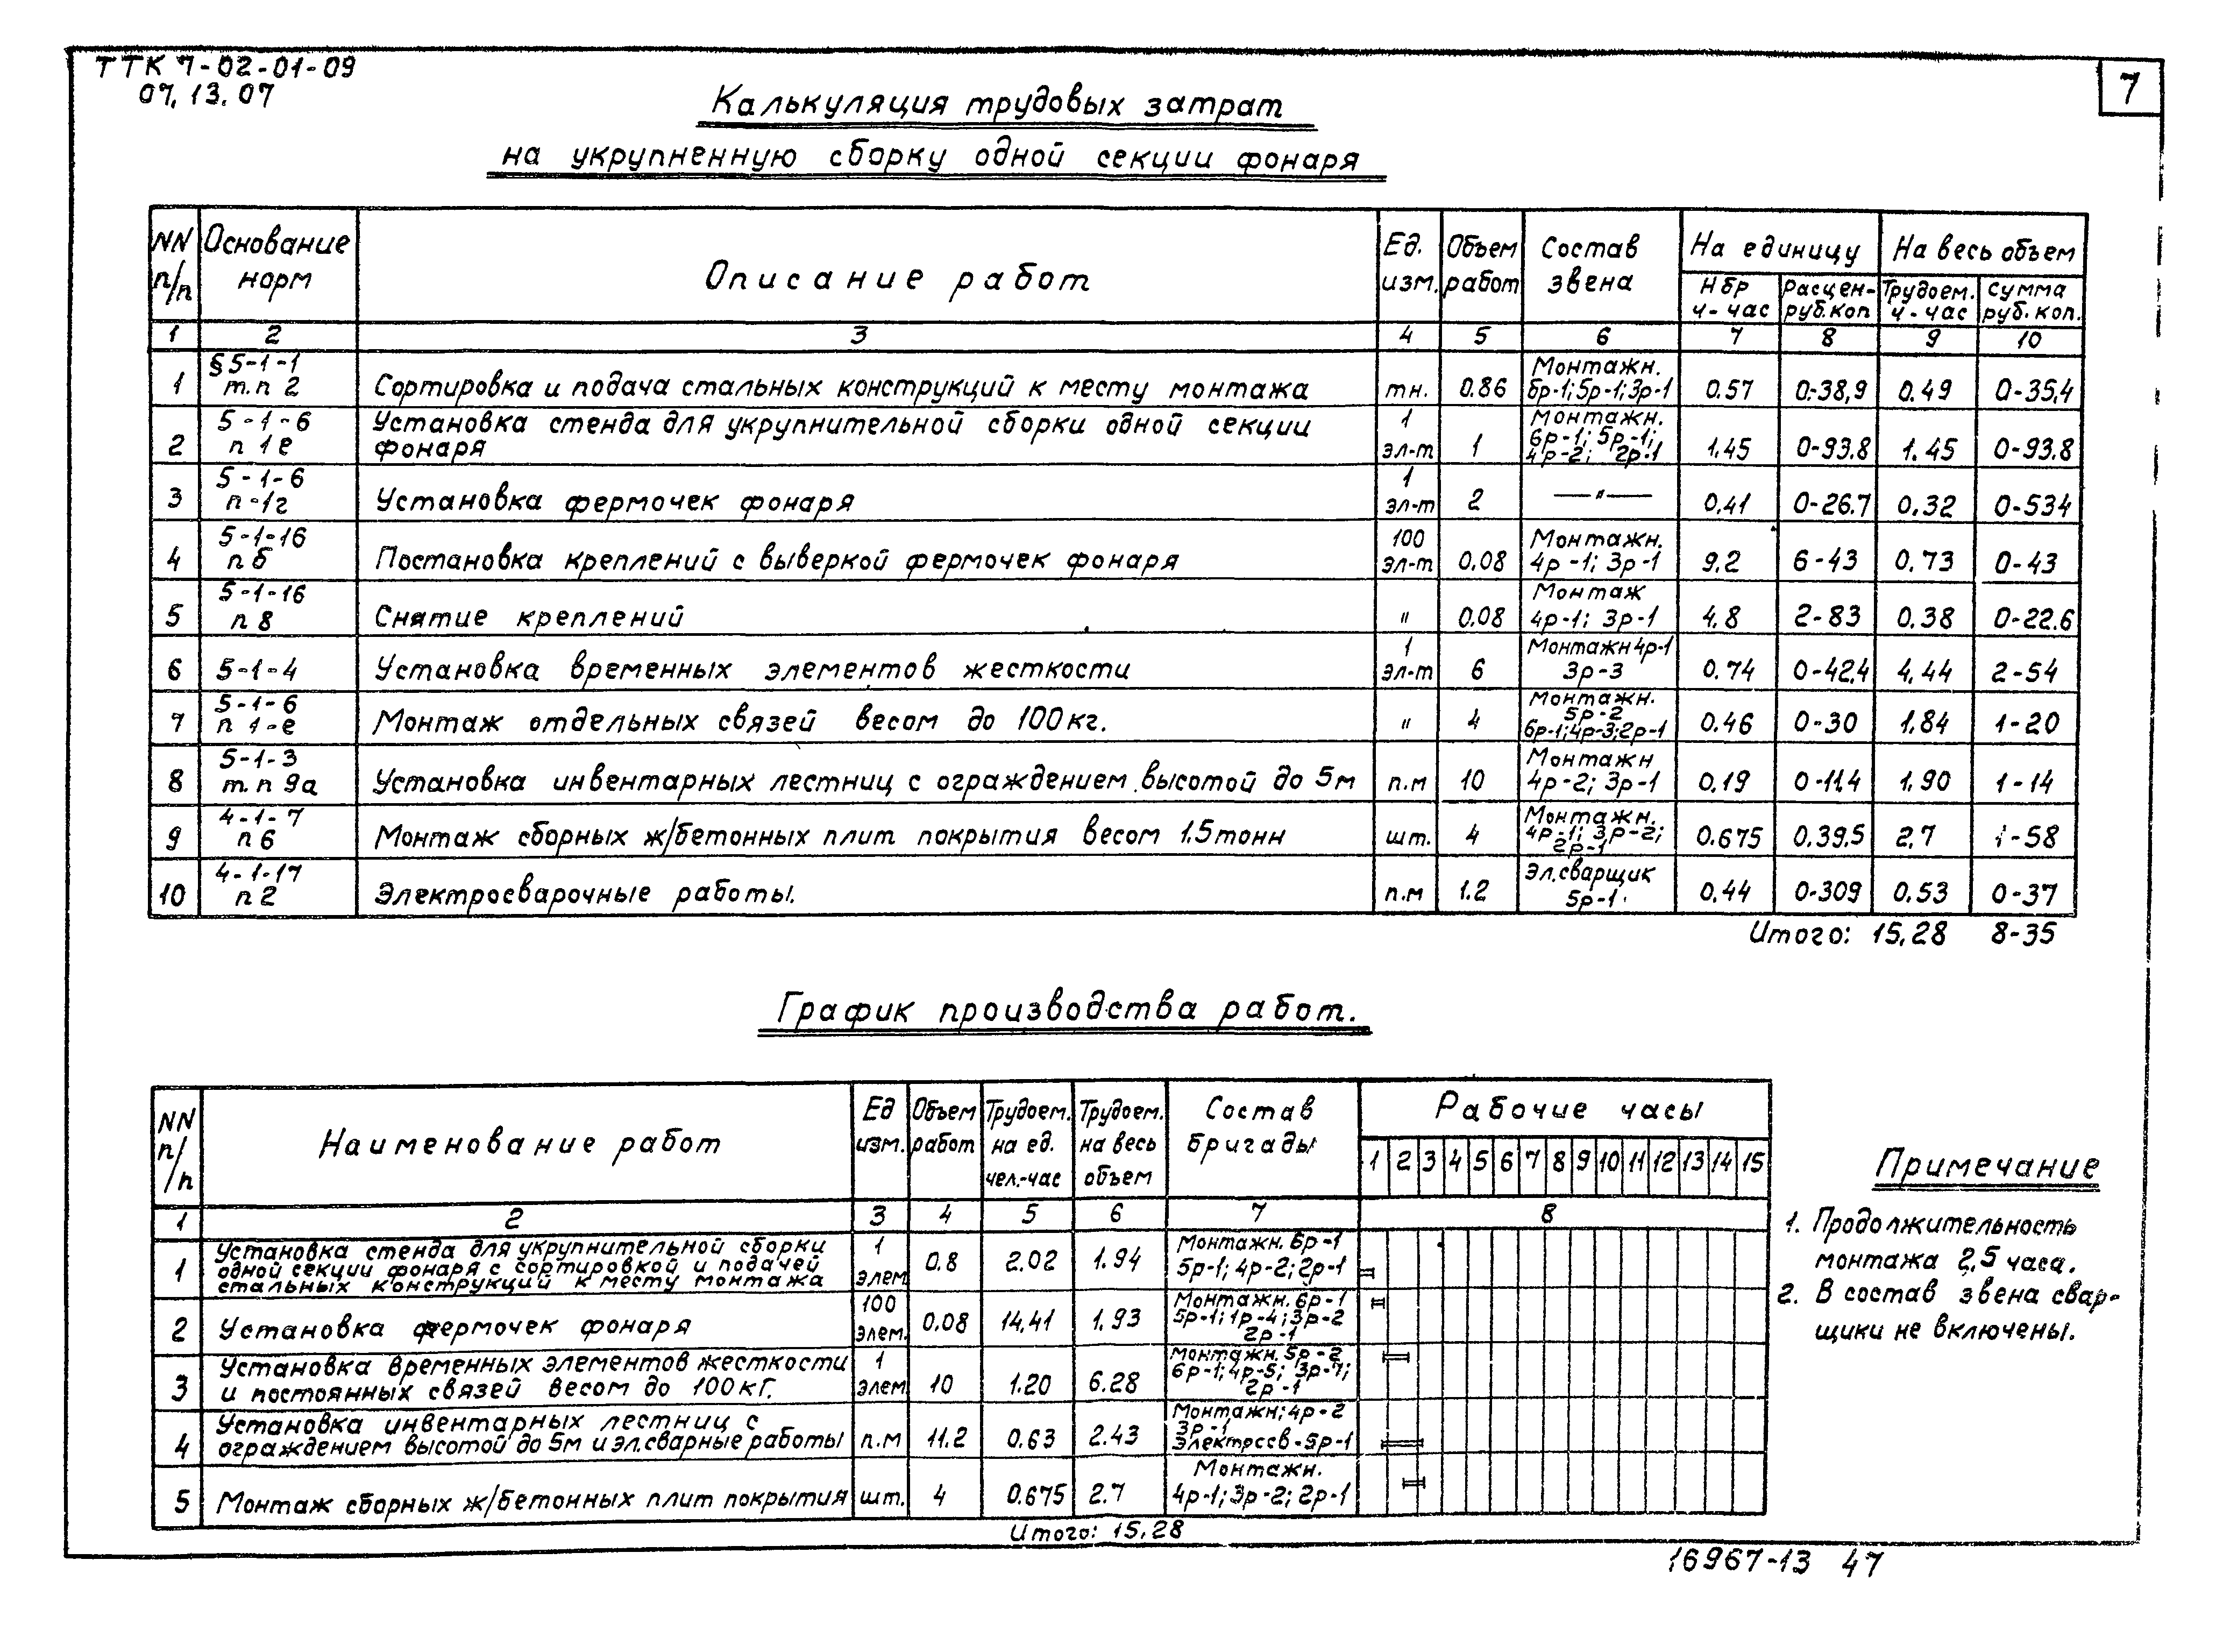 ТТК 7-02-01-09
07.13.07
7
Калькуляция трудовых затрат
на укрупненную сборку одной секции фонаря
NN п/п | Основание норм | Описание работ | Ед. изм. | Объем работ | Состав звена | На единицу | На весь объем
Нбр ч-час | Расцен- руб.коп | Трудоем. ч-час | Сумма руб. коп.
1 | 2 | 3 | 4 | 5 | 6 | 7 | 8 | 9 | 10
1 | § 5-1-1 т.п 2 | Сортировка и подача стальных конструкций к месту монтажа | тн. | 0.86 | Монтажн. 6р-1; 5р-1; 3р-1 | 0.57 | 0-38,9 | 0.49 | 0-35,4
2 | 5-1-6 п 1е | Установка стенда для укрупнительной сборки одной секции фонаря | 1 эл-т | 1 | Монтажн. 6р-1; 5р-1; 4р-2; 2р-1 | 1.45 | 0-93.8 | 1.45 | 0-93.8
3 | 5-1-6 п-1г | Установка фермочек фонаря | 1 эл-т | 2 | —"— | 0.41 | 0-26.7 | 0.32 | 0-534
4 | 5-1-16 п б | Постановка креплений с выверкой фермочек фонаря | 100 эл-т | 0.08 | Монтажн. 4р-1; 3р-1 | 9.2 | 6-43 | 0.73 | 0-43
5 | 5-1-16 п 8 | Снятие креплений | " | 0.08 | Монтаж 4р-1; 3р-1 | 4.8 | 2-83 | 0.38 | 0-22.6
6 | 5-1-4 | Установка временных элементов жесткости | 1 эл-т | 6 | Монтажн 4р-1 3р-3 | 0.74 | 0-42,4 | 4.44 | 2-54
7 | 5-1-6 п 1-е | Монтаж отдельных связей весом до 100кг. | " | 4 | Монтажн. 5р-2 6р-1; 4р-3; 2р-1 | 0.46 | 0-30 | 1.84 | 1-20
8 | 5-1-3 т.п 9а | Установка инвентарных лестниц с ограждением высотой до 5м | п.м | 10 | Монтажн 4р-2; 3р-1 | 0.19 | 0-11,4 | 1.90 | 1-14
9 | 4-1-7 п 6 | Монтаж сборных ж/бетонных плит покрытия весом 1.5тонн | шт. | 4 | Монтажн. 4р-1; 3р-2; 2р-1 | 0.675 | 0.39.5 | 2.7 | 1-58
10 | 4-1-17 п 2 | Электросварочные работы. | п.м | 1.2 | Эл.сварщик 5р-1 | 0.44 | 0-309 | 0.53 | 0-37
Итого: 15,28 8-35
График производства работ.
NN п/п | Наименование работ | Ед изм. | Объем работ | Трудоем. на ед. чел.-час | Трудоем. на весь объем | Состав бригады | Рабочие часы
1 2 3 4 5 6 7 8 9 10 11 12 13 14 15
1 | 2 | 3 | 4 | 5 | 6 | 7 | 8
1 | Установка стенда для укрупнительной сборки одной секции фонаря с сортировкой и подачей стальных конструкций к месту монтажа | 1 элем | 0.8 | 2.02 | 1.94 | Монтажн. 6р-1 5р-1; 4р-2; 2р-1
2 | Установка фермочек фонаря | 100 элем. | 0.08 | 14,41 | 1.93 | Монтажн. 6р-1 5р-1; 1р-4; 3р-2 2р-1
3 | Установка временных элементов жесткости и постоянных связей весом до 100кг. | 1 элем | 10 | 1.20 | 6.28 | Монтажн. 5р-2 6р-1; 4р-5; 3р-7; 2р-1
4 | Установка инвентарных лестниц с ограждением высотой до 5м и эл.сварные работы | п.м | 11.2 | 0.63 | 2.43 | Монтажн; 4р-2 3р-1 Электросв-5р-1
5 | Монтаж сборных ж/бетонных плит покрытия | шт. | 4 | 0.675 | 2.7 | Монтажн. 4р-1; 3р-2; 2р-1
Итого: 15,28
Примечание
1. Продолжительность
монтажа 2,5 часа.
2. В состав звена свар-
щики не включены.
16967-13 47